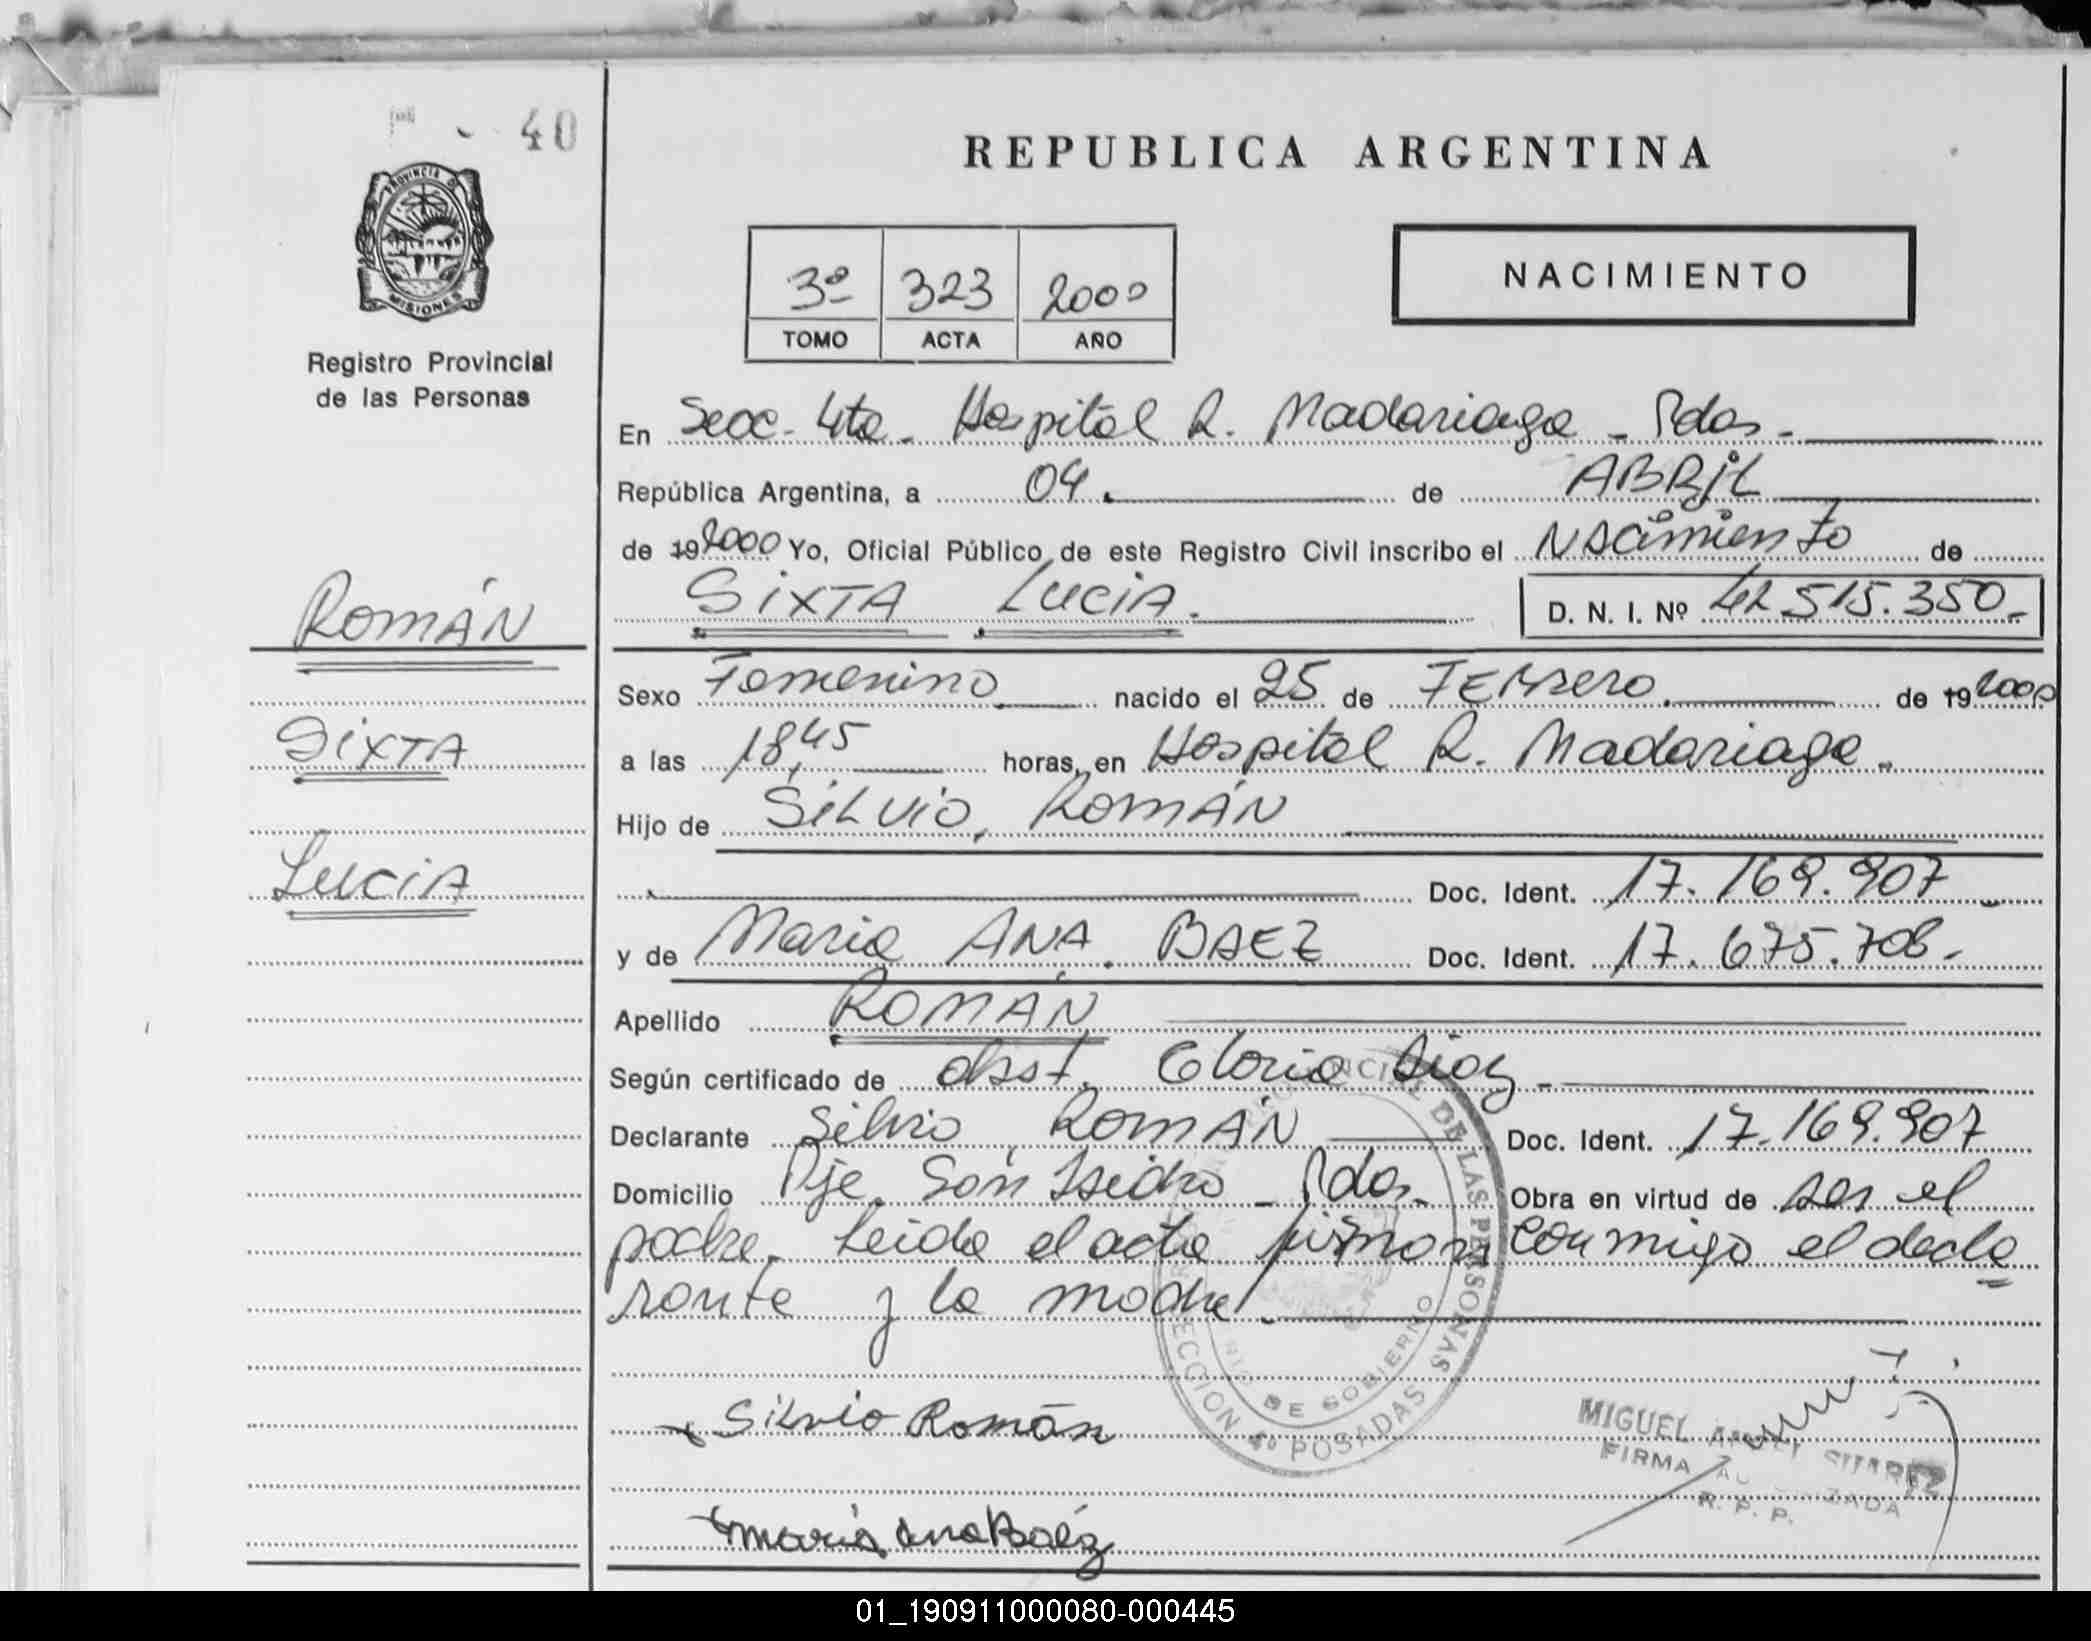 40
PROVINCIA DE
MISIONES
Registro Provincial
de las Personas
ROMÁN
SIXTA
LUCIA
REPUBLICA ARGENTINA
3º 323 2000
TOMO ACTA AÑO
NACIMIENTO
En Secc. 4ta. Hospital R. Madariaga - Pdas.
República Argentina, a 04. de ABRIL
de 192000 Yo, Oficial Público de este Registro Civil inscribo el NACimienTo de
SIXTA LUCIA. D. N. I. Nº 42.515.350.-
Sexo Femenino nacido el 25 de FEBrero. de 192000
a las 18,45 horas, en Hospital R. Madariaga.
Hijo de SiLvio, ROMÁN
Doc. Ident. 17.169.907
y de Maria ANA. BAEZ Doc. Ident. 17.675.708.-
Apellido ROMÁN
Según certificado de obst. Gloria Dioz.
Declarante Silvio ROMÁN Doc. Ident. 17.169.907
Domicilio Pje. San Isidro - Pdas. Obra en virtud de ser el
padre. Leida el acta firman conmigo el decla
rante y la madre.
DE LAS PERSONAS
DE GOBIERNO
SECCION 4º POSADAS
Silvio Román
Maria Ana Baéz
MIGUEL ANGEL SUAREZ
FIRMA AUTORIZADA
R. P. P.
01_190911000080-000445